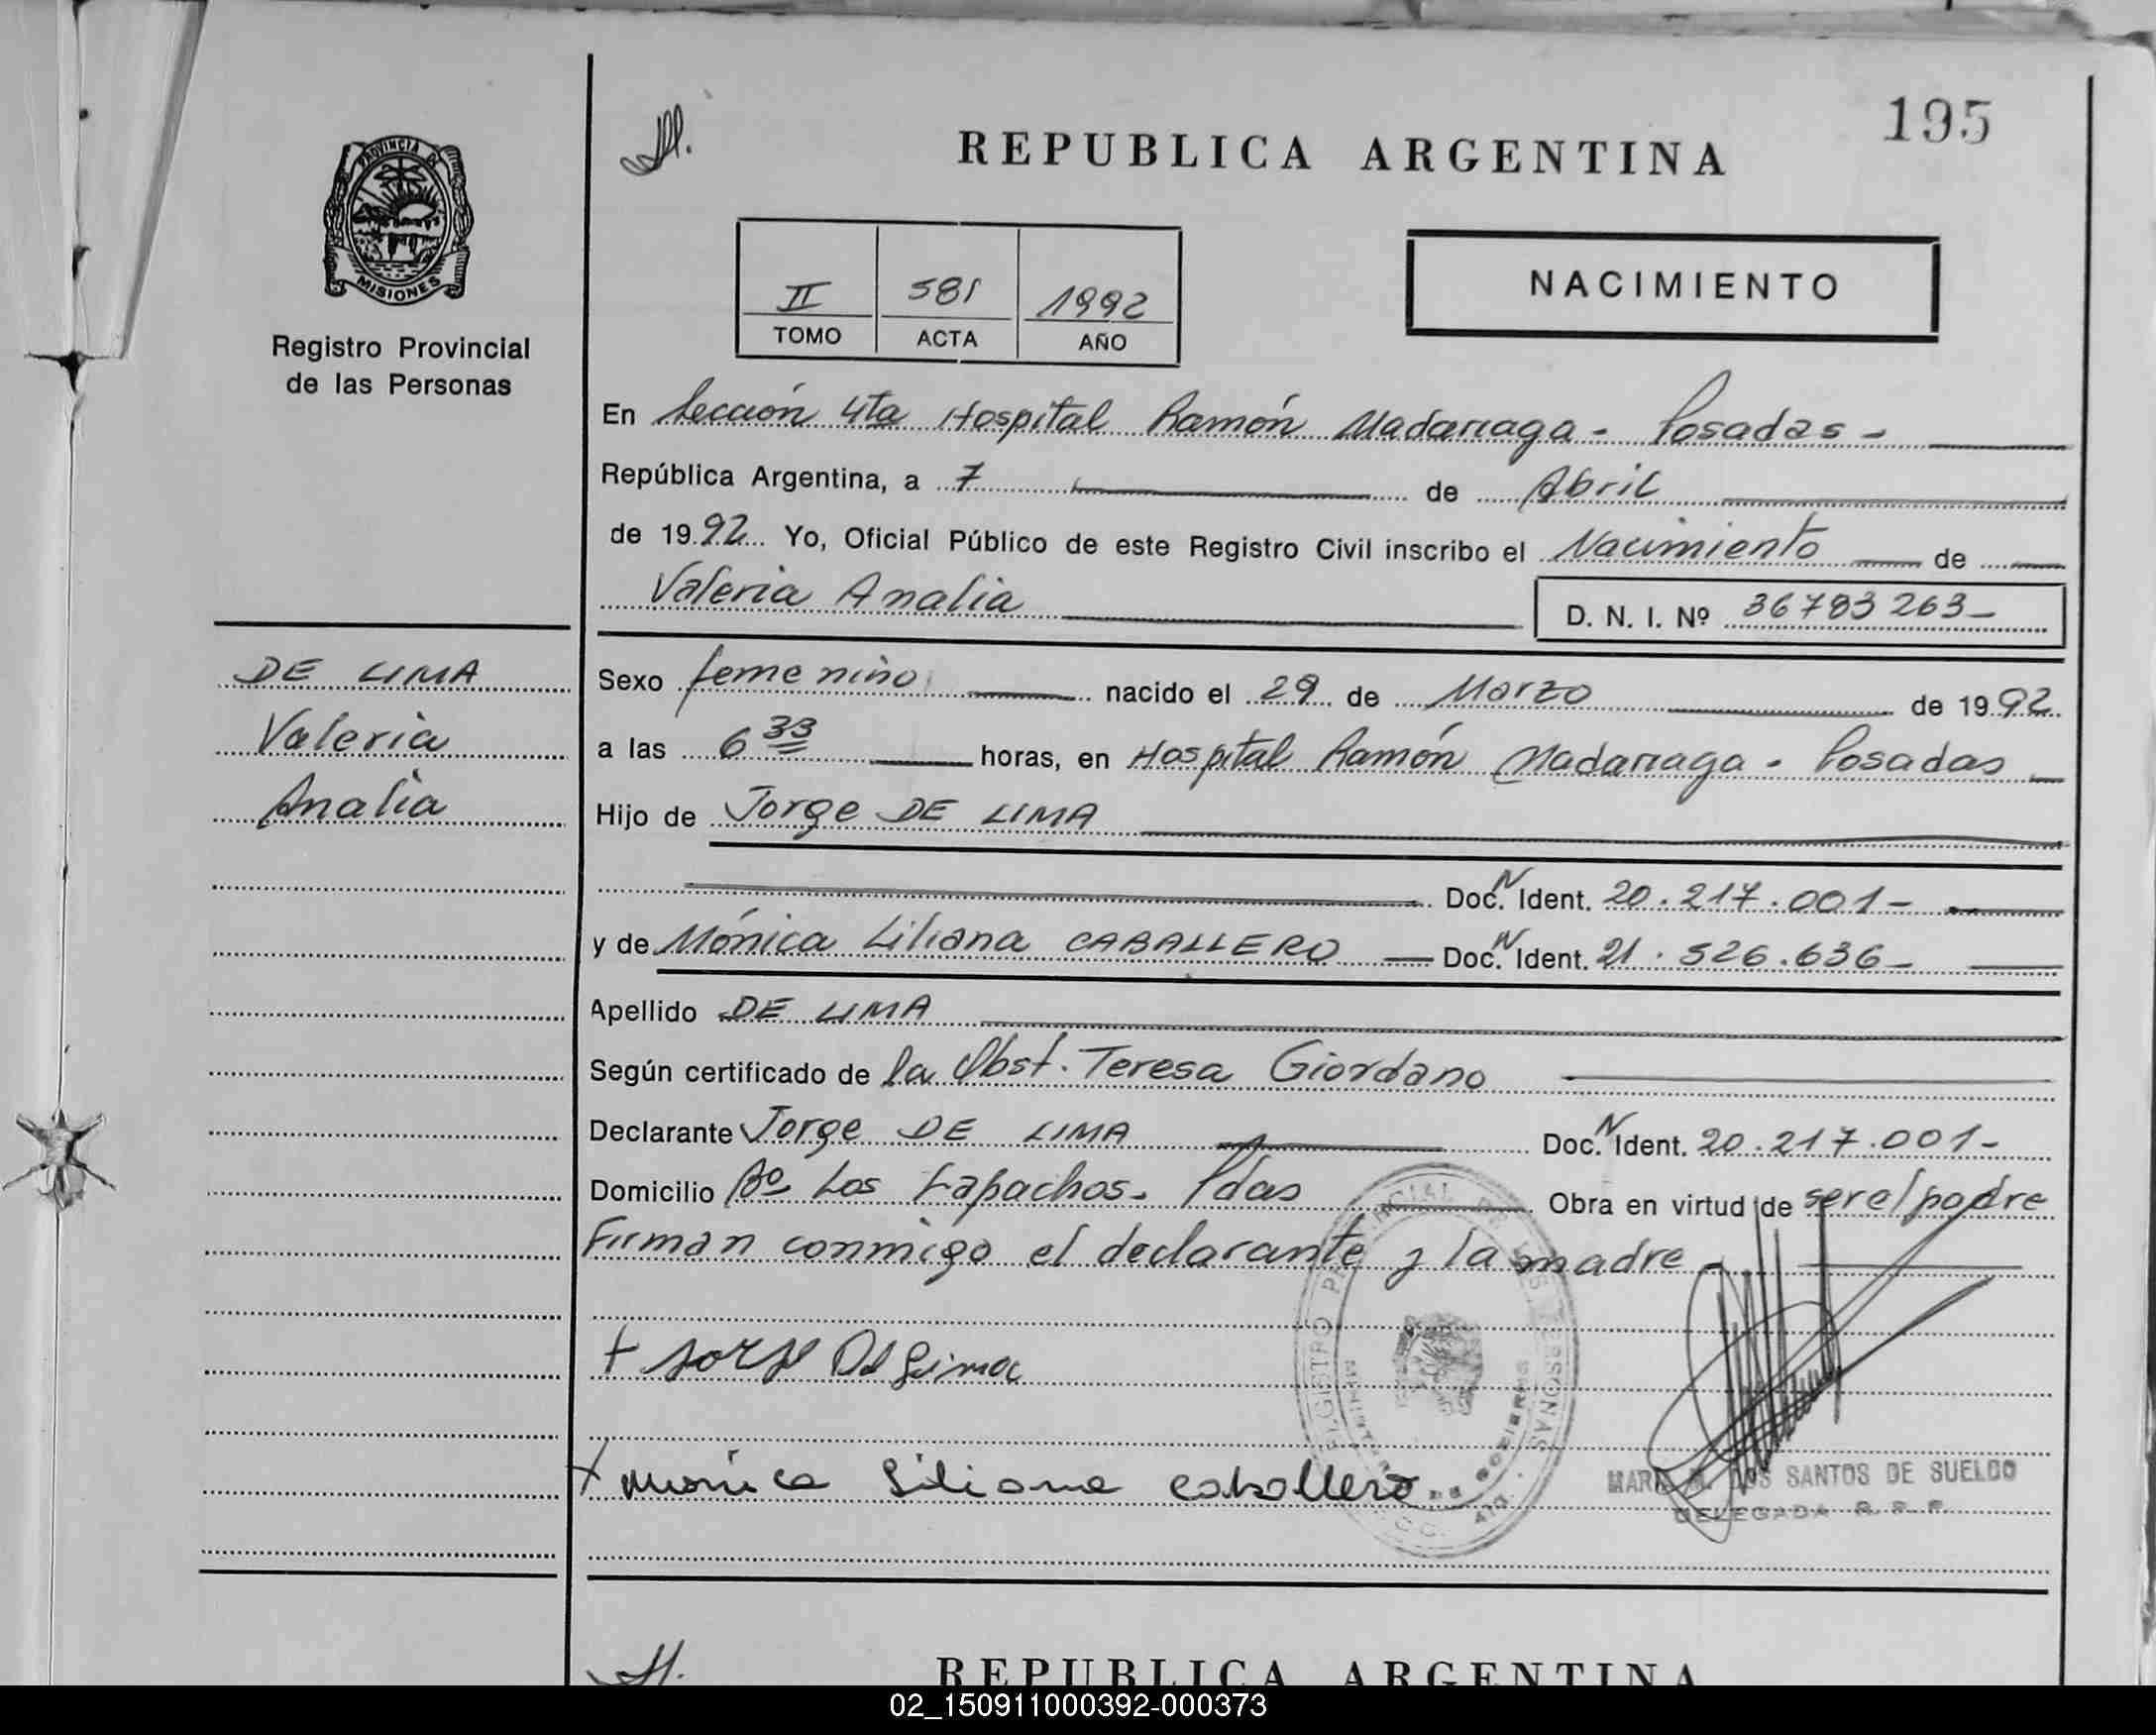 195
REPUBLICA ARGENTINA
PROVINCIA DE
MISIONES
Registro Provincial
de las Personas
II 581 1992
TOMO ACTA AÑO
NACIMIENTO
En Sección 4ta Hospital Ramón Madariaga - Posadas -
República Argentina, a 7 de Abril
de 1992 Yo, Oficial Público de este Registro Civil inscribo el Nacimiento de
Valeria Analia D. N. I. Nº 36783263-
DE LIMA
Valeria
Analia
Sexo femenino nacido el 29 de Marzo de 1992
a las 6 33 horas, en Hospital Ramón Madariaga - Posadas
Hijo de Jorge DE LIMA
Doc. N Ident. 20.217.001-
y de Mónica Liliana CABALLERO Doc. N Ident. 21.526.636-
Apellido DE LIMA
Según certificado de la Obst. Teresa Giordano
Declarante Jorge DE LIMA Doc. N Ident. 20.217.001-
Domicilio Bº Los Lapachos. Pdas Obra en virtud de ser el padre
Firman conmigo el declarante y la madre -
+ Jorge De Lima
+ Monica Liliana Caballero
REGISTRO PROVINCIAL DE LAS PERSONAS
MINISTERIO DE GOBIERNO
SANTOS DE SUELDO
DELEGADA R. P. P.
REPUBLICA ARGENTINA
02_150911000392-000373